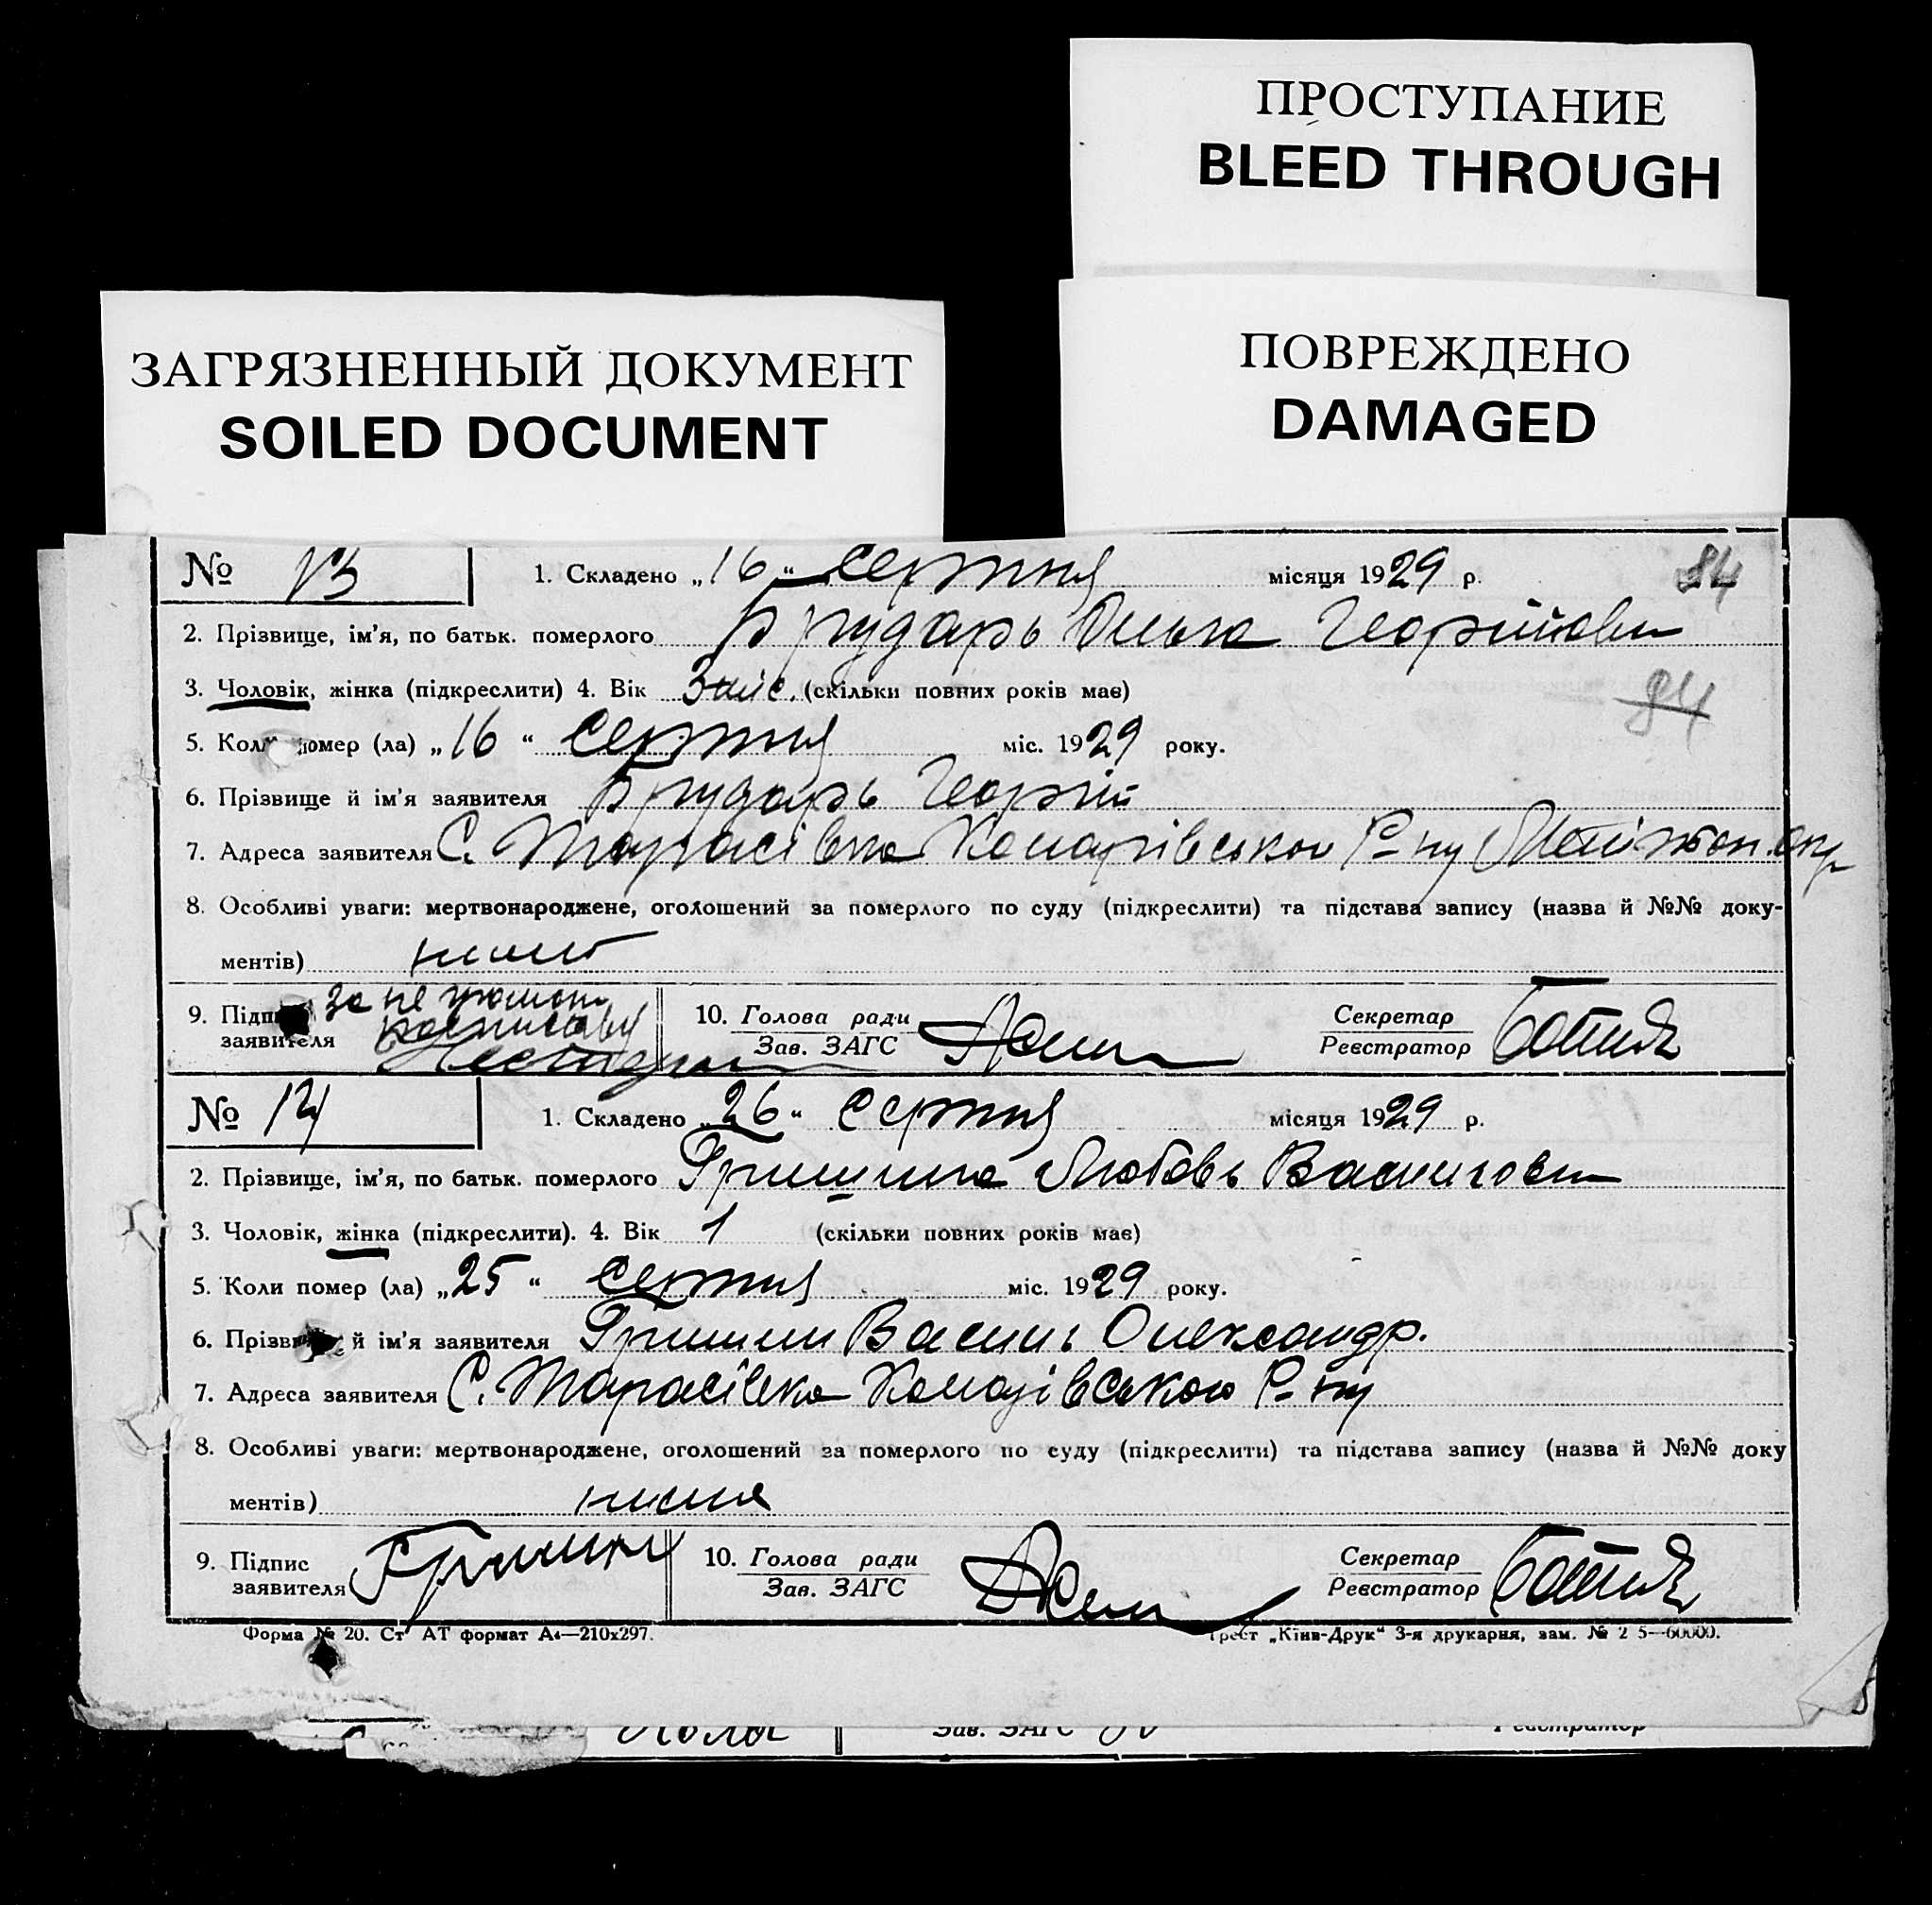 ПРОСТУПАНИЕ
BLEED THROUGH
ЗАГРЯЗНЕННЫЙ ДОКУМЕНТ
SOILED DOCUMENT
ПОВРЕЖДЕНО
DAMAGED
№ 13 1. Складено „16“ серпня місяця 1929 р. 84
2. Прізвище, ім'я, по батьк. померлого Брударь Ілько Георгійович
3. Чоловік, жінка (підкреслити) 4. Вік 3 міс. (скільки повних років має) 84
5. Коли помер (ла) „16“ серпня міс. 1929 року.
6. Прізвище й ім'я заявителя Брударь Георгій
7. Адреса заявителя С. Тарасівка Комарівського Р-ну
8. Особливі уваги: мертвонароджене, оголошений за померлого по суду (підкреслити) та підстава запису (назва й №№ доку-
ментів) нима
9. Підпис за не грамотн. 10. Голова ради Секретар
заявителя росписавсь Зав. ЗАГС Реєстратор
№ 14 1. Складено „26“ серпня місяця 1929 р.
2. Прізвище, ім'я, по батьк. померлого Гришина Любовь Василіовн
3. Чоловік, жінка (підкреслити). 4. Вік 1 (скільки повних років має)
5. Коли помер (ла) „25“ серпня міс. 1929 року.
6. Прізвище й ім'я заявителя Гришин Василь Олександр.
7. Адреса заявителя С. Тарасівка Комарівського Р-ну
8. Особливі уваги: мертвонароджене, оголошений за померлого по суду (підкреслити) та підстава запису (назва й №№ доку
ментів) нима
9. Підпис Гришин 10. Голова ради Секретар
заявителя Зав. ЗАГС Реєстратор
Форма № 20. Ст АТ формат А4—210х297. Трест „Київ-Друк“ 3-я друкарня, зам. № 2 5—60000.
Зав. ЗАГС Реєстратор